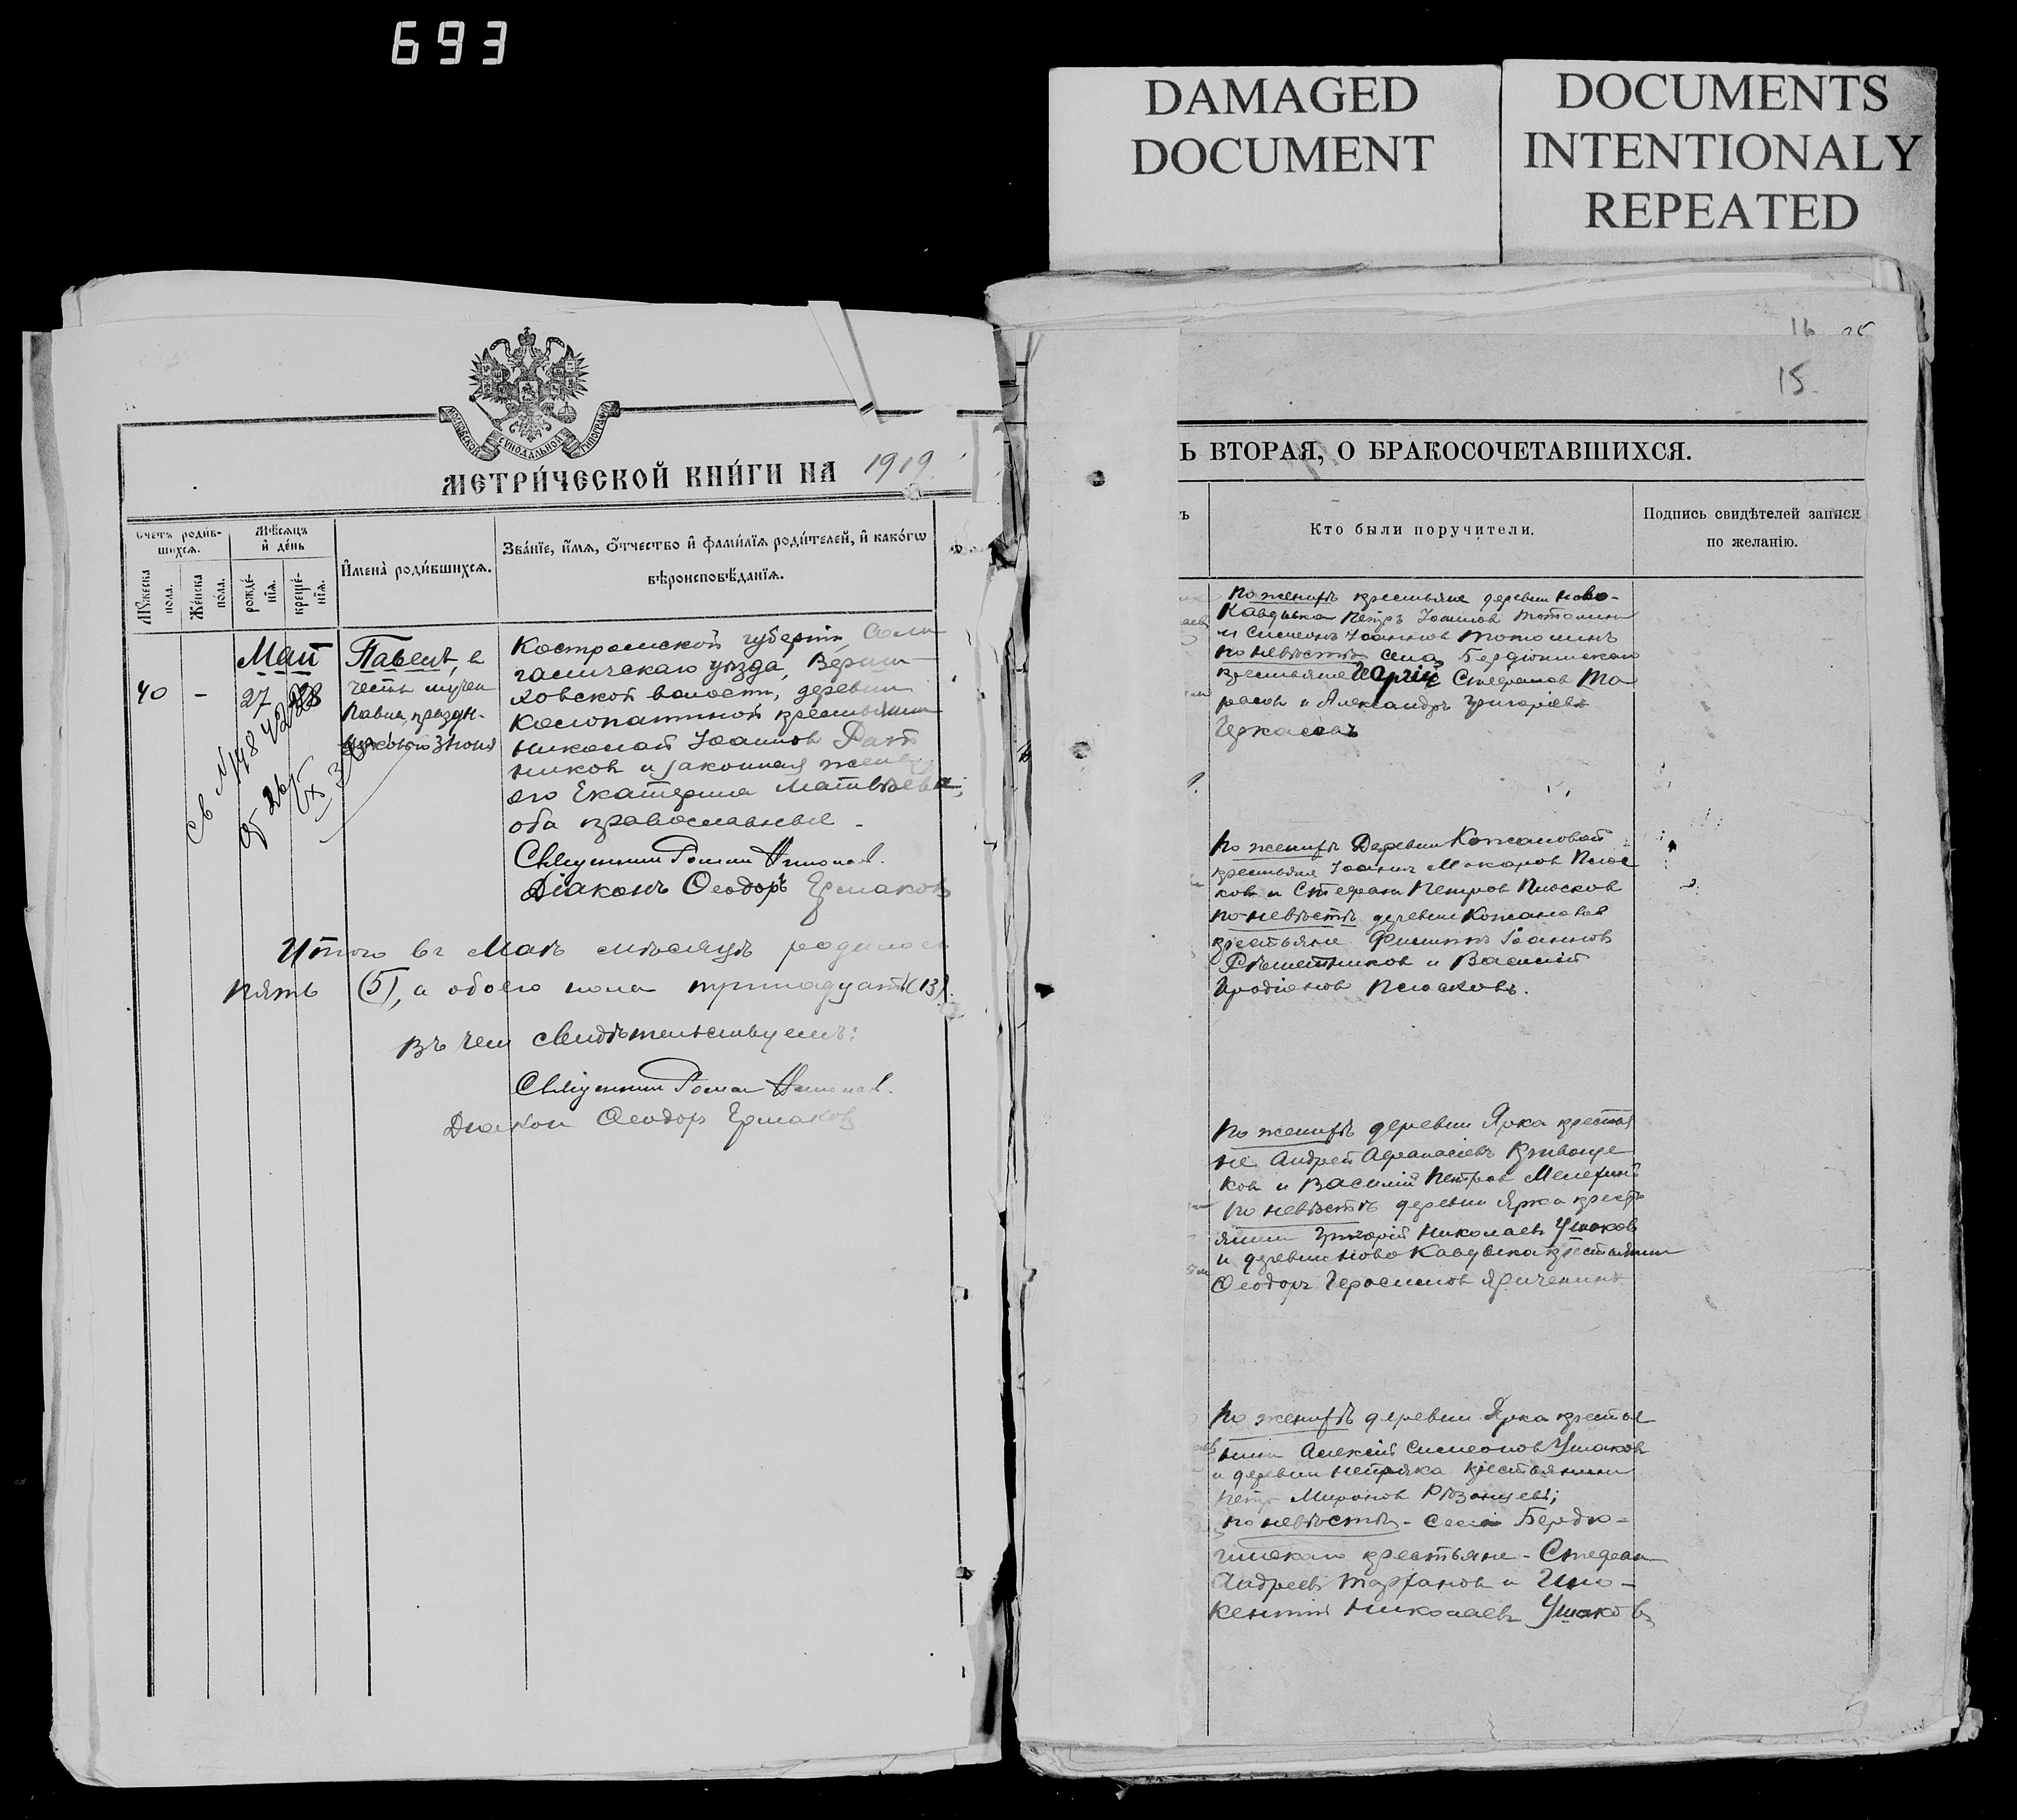 693
DAMAGED
DOCUMENT
DOCUMENTS
INTENTIONALY
REPEATED
МОСКОВСКОЙ СѴНОДАЛЬНОЙ ТИПОГРАФ
МЕТРИ́ЧЕСКОЙ КНИ́ГИ НА 1919
Счетъ роди́в-
шихся.
Мѣ́сяцъ
и҆ де́нь
Мꙋжеска
пола.
Же́нска
по́ла.
рожде́-
нїѧ.
креще́-
нїѧ.
И҆мена̀ роди́вшихсѧ.
Зва́нїе, и҆́мѧ, ѻ҆́тчество и҆ фами́лїѧ роди́телей, и҆ како́гѡ
вѣроисповѣ́данїѧ.
Май
40 - 27 28
Павелъ, в
честь мучен
Павла, празд-
3 июня
Костромской губернiи, Соли
галичскаго уѣзда, Верхи
ховской волости, деревни
крестьянин
Николай Iоаннов
ников и законная жена
его Екатерина Матвѣева;
оба православные.
Священник Роман
Дiаконъ Ѳеодоръ Ермаков
Св № 148
Итого въ Маѣ мѣсяцѣ родилось
пять (5), а обоего пола тринадцать (13).
Въ чем свидѣтельствуемъ:
Священник Роман
Диакон Ѳеодоръ Ермаковъ
16
15
Ь ВТОРАЯ, О БРАКОСОЧЕТАВШИХСЯ.
ъ
Кто были поручители.
Подпись свидѣтелей записи
по желанію.
По женихѣ крестьяне деревни Ново-
Кавдыка Петръ Iоаннов Тотолинъ
и Симеонъ Iоаннов Тотолинъ
по невѣстѣ села Бердюгинскаго
крестьяне Стефанов Та
расов и Александръ Григорiевъ
Черкасовъ
По женихѣ Деревни Кожановой
крестьяне Iоаннъ Макаров Плюс
ков и Стефанъ Петров Плюсков
по невѣстѣ деревни Кожановой
крестьяне Филиппъ Iоаннов
Рѣшетников и Василiй
Иродiонов Плюсковъ.
По женихѣ деревни Ярка крестья
не Андрей Афанасiевъ Кривоще
ков и Василiй Петров Мелехинъ
по невѣстѣ деревни Ярка крест
янин Григорiй Николаевъ Ушаков
и деревни Ново Кавдыка крестьянин
Ѳеодоръ Герасимов Яриченинъ
По женихѣ деревни Ярка крестья
нин Алексiй Симеонов Ушаков
и деревни Непряка крестьянин
Петр Миронов Рязанцевъ;
по невѣстѣ - села Бердю-
гинскаго крестьяне - Стефан
Андреевъ Тарханов и Инно-
кентiй Николаевъ Ушаковъ